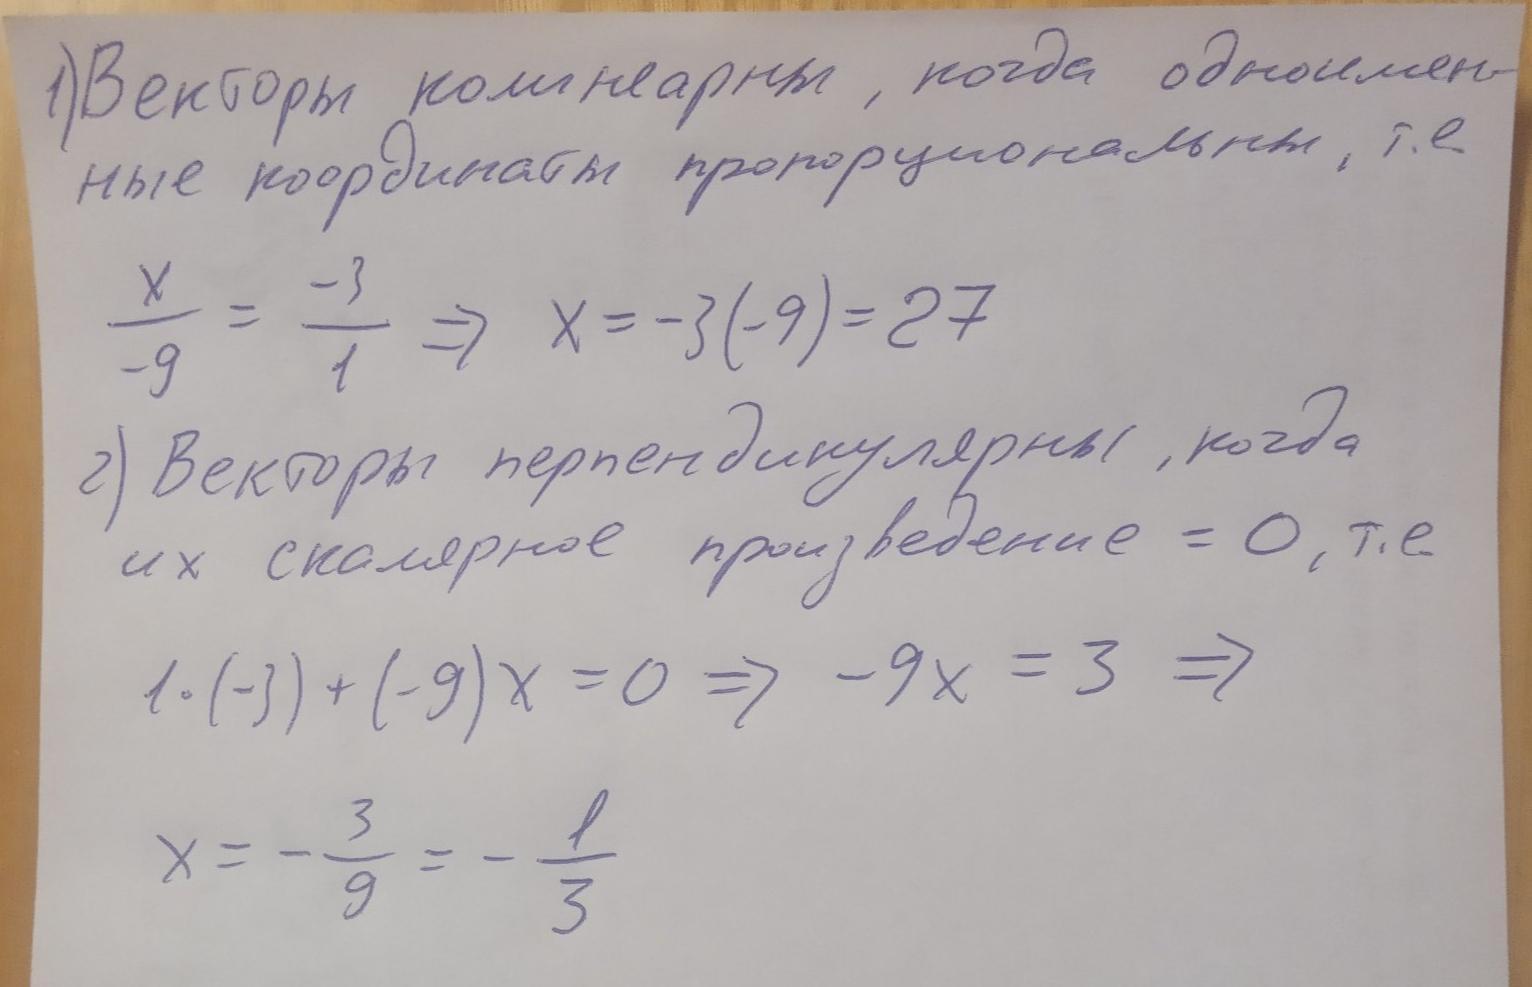 1) Векторы колинеарны, когда одноимен-
ные координаты пропорциональны, т.е
x/-9 = -3/1 => x = -3(-9) = 27
2) Векторы перпендикулярны, когда
их скалярное произведение = 0, т.е
1·(-3) + (-9)x = 0 => -9x = 3 =>
x = -3/9 = -1/3